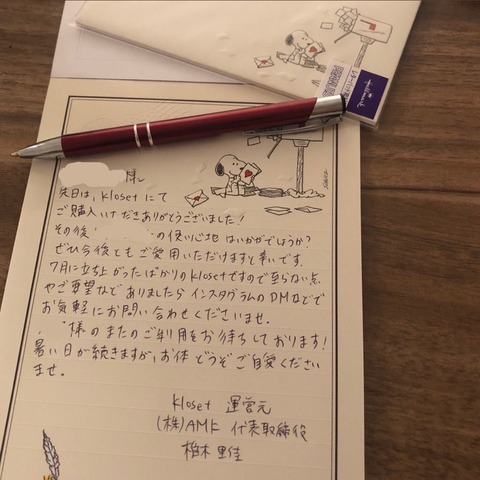 様
先日は、klosetにて
ご購入いただきありがとうございました!
その後 の使い心地はいかがでしょうか?
ぜひ今後ともご愛用いただけますと幸いです。
7月に立ち上がったばかりのklosetですので至らない点
やご要望などありましたらインスタグラムのDMなどで
お気軽にお問い合わせくださいませ。
様のまたのご利用をお待ちしております!
暑い日が続きますが、お体どうぞご自愛ください
ませ。
kloset 運営元
(株)AMK 代表取締役
柏木 里佳
Hallmark